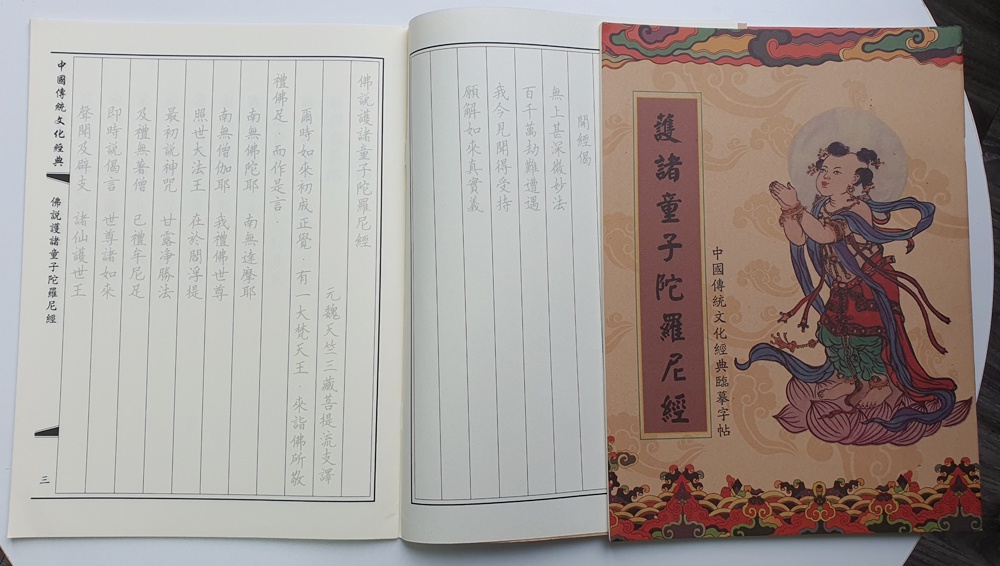 護諸童子陀羅尼經
中國傳統文化經典臨摹字帖
開經偈
無上甚深微妙法
百千萬劫難遭遇
我今見聞得受持
願解如來真實義
佛說護諸童子陀羅尼經
元魏天竺三藏菩提流支譯
爾時如來初成正覺．有一大梵天王．來詣佛所敬
禮佛足．而作是言．
南無佛陀耶　南無達摩耶
南無僧伽耶　我禮佛世尊
照世大法王　在於閻浮提
最初說神咒　甘露淨勝法
及禮無著僧　已禮牟尼足
即時說偈言　世尊諸如來
聲聞及辟支　諸仙護世王
中國傳統文化經典
佛說護諸童子陀羅尼經
三